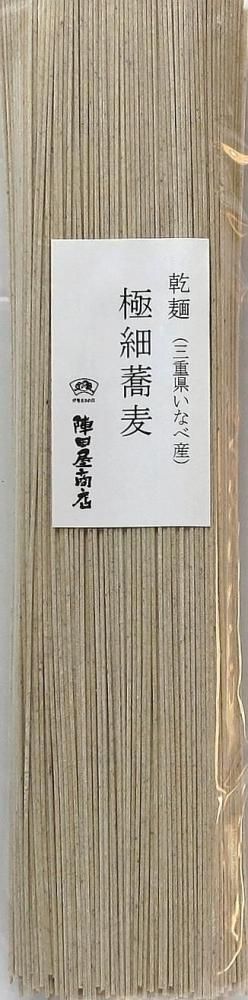 乾麺（三重県いなべ産）
極細蕎麦
陣田屋商店